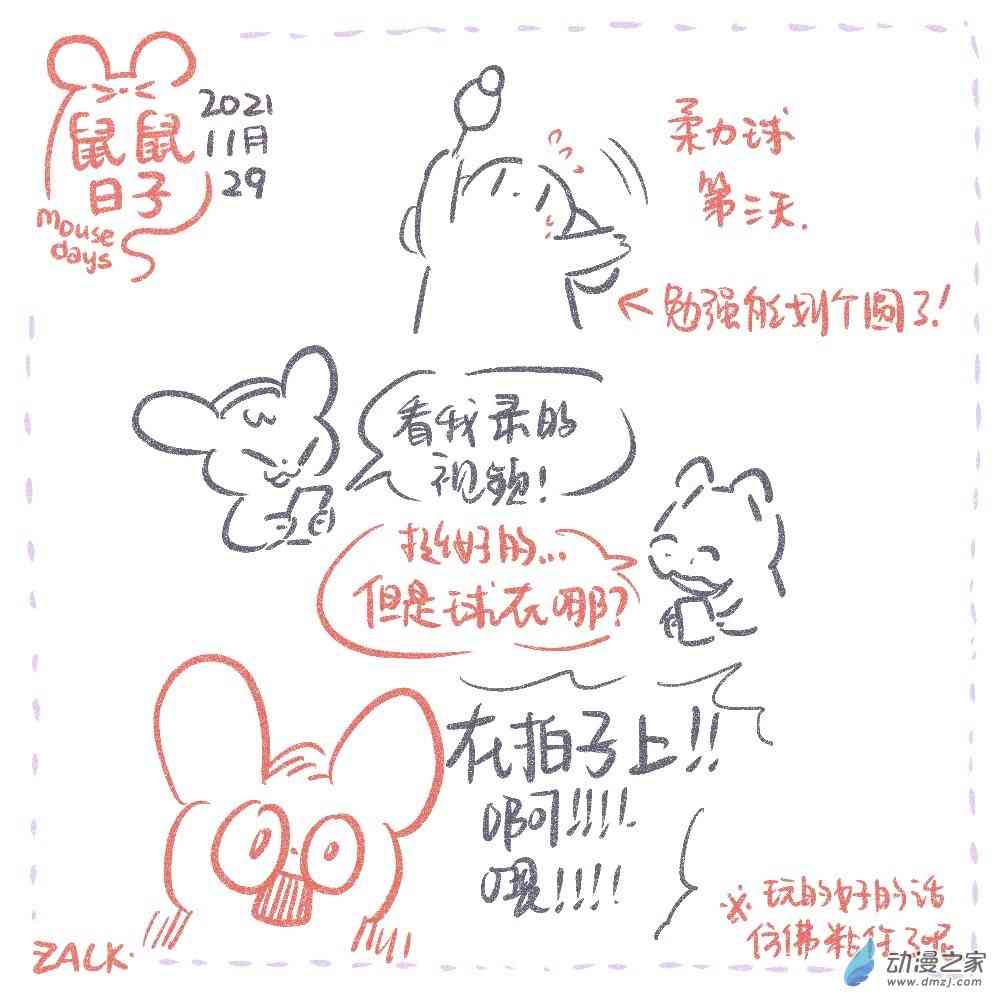 鼠鼠
日子
mouse
days
2021
11月
29
柔力球
第三天.
←勉强能划个圆了!
看我录的
视频!
挺好的...
但是球在哪?
在拍子上!!
啊!!!!
喂!!!!
※玩的好的话
仿佛粘住了呢
ZALK.
动漫之家
www.dmzj.com